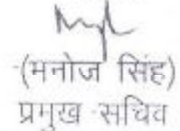 (मनोज सिंह)
प्रमुख सचिव